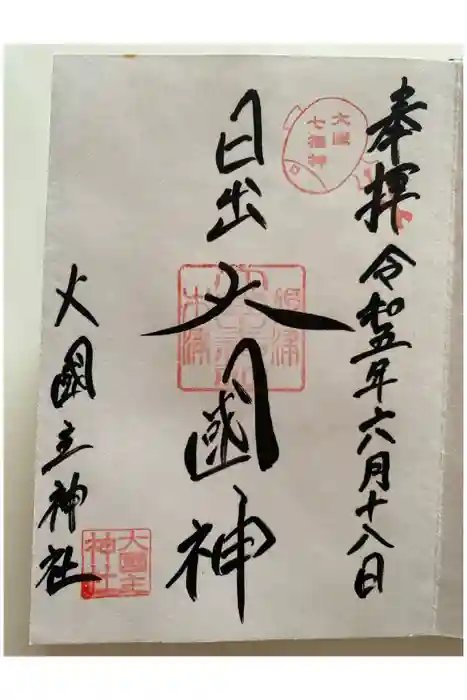 奉拝 令和五年六月十八日
大國
七福神
日出大國神
大國主神社
大國主
神社